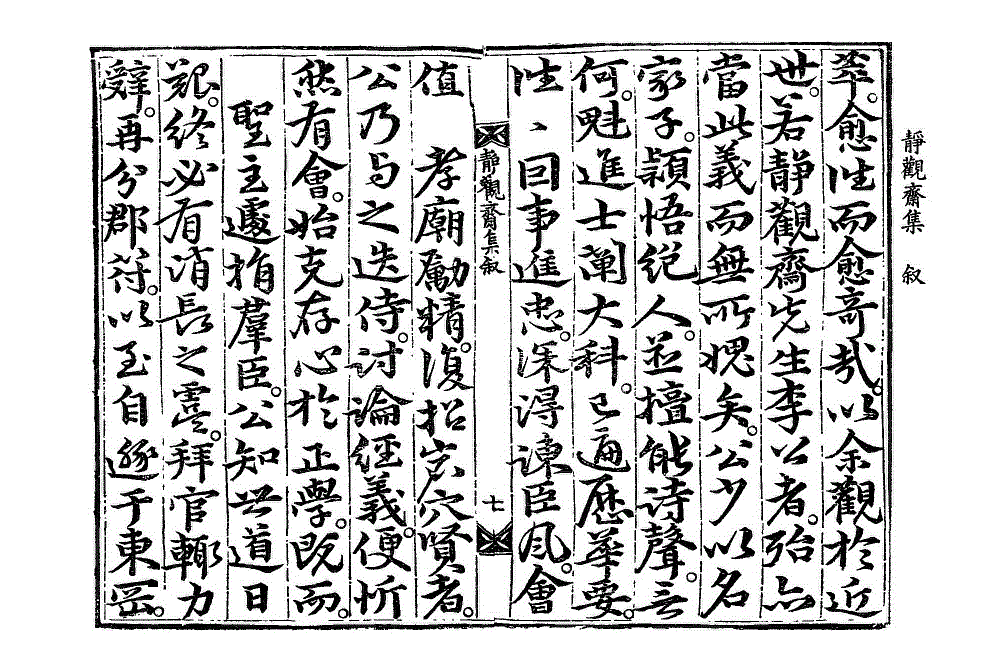 靜觀齋集 叙
萃。愈往而愈奇哉。以余觀於近
世。若靜觀齋先生李公者。殆亦
當此義而無所愧矣。公少以名
家子。頴悟絕人。並擅能詩聲。無
何。魁進士闡大科。已遍歷華要。
往〻因事進忠。深淂諫臣風。會
靜觀齋集叙 七
值 孝廟勵精。復招岩穴賢者。
公乃与之迭侍。討論經義。便忻
然有會。始克存心於正學。既而。
聖主遽捐羣臣。公知世道日
艱。終必有消長之虞。拜官輒力
辭。再分郡符。以至自遯于東岡。